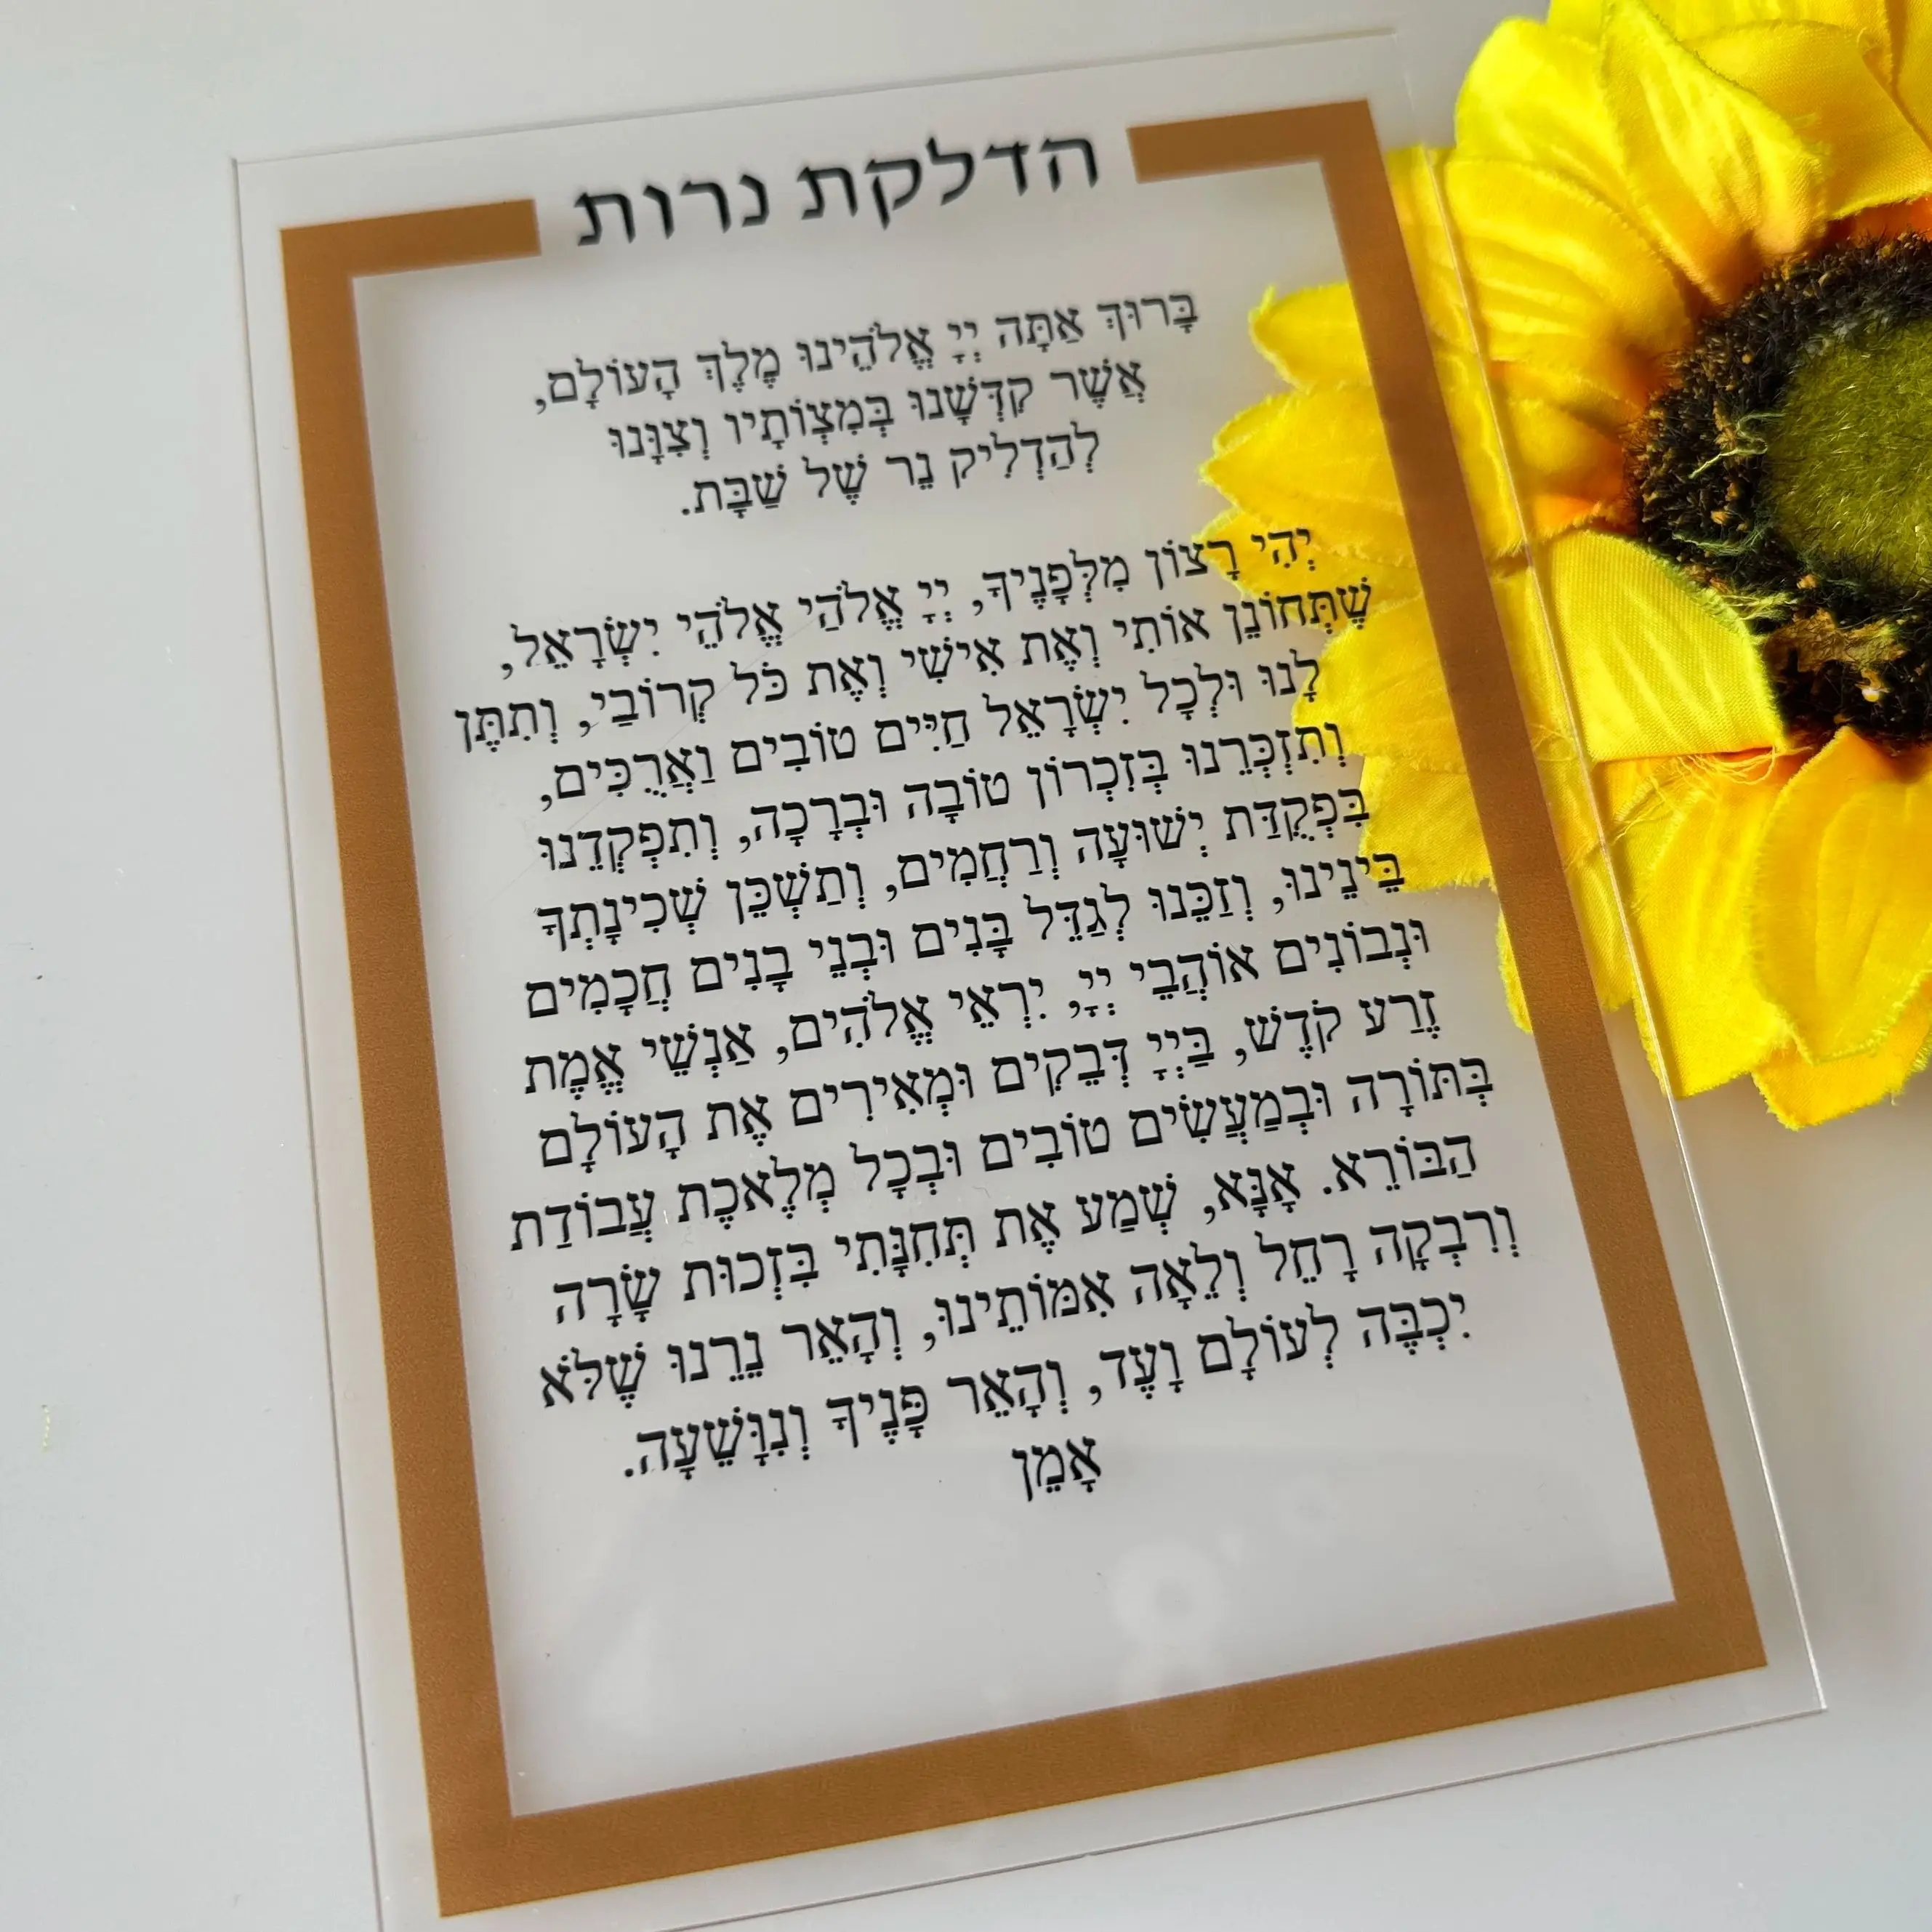 הדלקת נרות
בָּרוּךְ אַתָּה יְיָ אֱלֹהֵינוּ מֶלֶךְ הָעוֹלָם,
אֲשֶׁר קִדְּשָׁנוּ בְּמִצְוֹתָיו וְצִוָּנוּ
לְהַדְלִיק נֵר שֶׁל שַׁבָּת.
יְהִי רָצוֹן מִלְּפָנֶיךָ, יְיָ אֱלֹהַי אֱלֹהֵי יִשְׂרָאֵל,
שֶׁתְּחוֹנֵן אוֹתִי וְאֶת אִישִׁי וְאֶת כֹּל קְרוֹבַי, וְתִתֶּן
לָנוּ וּלְכָל יִשְׂרָאֵל חַיִּים טוֹבִים וַאֲרֻכִּים,
וְתִזְכְּרֵנוּ בְּזִכְרוֹן טוֹבָה וּבְרָכָה, וְתִפְקְדֵנוּ
בִּפְקֻדַּת יְשׁוּעָה וְרַחֲמִים, וְתַשְׁכֵּן שְׁכִינָתְךָ
בֵּינֵינוּ, וְזַכֵּנוּ לְגַדֵּל בָּנִים וּבְנֵי בָנִים חֲכָמִים
וּנְבוֹנִים אוֹהֲבֵי יְיָ, יִרְאֵי אֱלֹהִים, אַנְשֵׁי אֱמֶת
זֶרַע קֹדֶשׁ, בַּיְיָ דְּבֵקִים וּמְאִירִים אֶת הָעוֹלָם
בְּתּוֹרָה וּבְמַעֲשִׂים טוֹבִים וּבְכָל מְלֶאכֶת עֲבוֹדַת
הַבּוֹרֵא. אָנָּא, שְׁמַע אֶת תְּחִנָּתִי בִּזְכוּת שָׂרָה
וְרִבְקָה רָחֵל וְלֵאָה אִמּוֹתֵינוּ, וְהָאֵר נֵרֵנוּ שֶׁלֹּא
יִכְבֶּה לְעוֹלָם וָעֶד, וְהָאֵר פָּנֶיךָ וְנִוָּשֵׁעָה.
אָמֵן